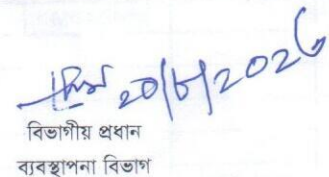 20/8/2026
বিভাগীয় প্রধান
ব্যবস্থাপনা বিভাগ